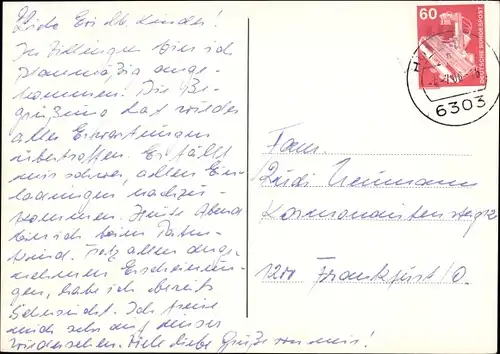 Liebe Eri lb. Kinder!
In Villingen bin ich
planmäßig ange-
kommen. Die Be-
grüßung hat wieder
alle Erwartungen
übertroffen. Es fällt
mir schwer, allen Ein-
ladungen nachzu-
kommen. Heute Abend
bin ich beim Paten-
kind. Trotz allen ange-
nehmen Erscheinun-
gen, habe ich bereits
Sehnsucht. Ich freue
mich sehr auf unser
Wiedersehen. Viele liebe Grüße von mir!
60
DEUTSCHE BUNDESPOST
6303
Fam.
Rudi Neumann
Kosmonautenweg 2
1200 Frankfurt/O.